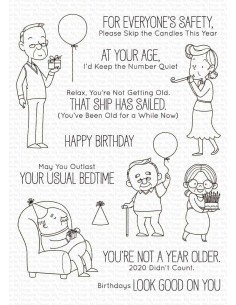 FOR EVERYONE'S SAFETY,
Please Skip the Candles This Year
AT YOUR AGE,
I'd Keep the Number Quiet
Relax, You're Not Getting Old.
THAT SHIP HAS SAILED.
(You've Been Old for a While Now)
HAPPY BIRTHDAY
May You Outlast
YOUR USUAL BEDTIME
YOU'RE NOT A YEAR OLDER.
2020 Didn't Count.
Birthdays LOOK GOOD ON YOU